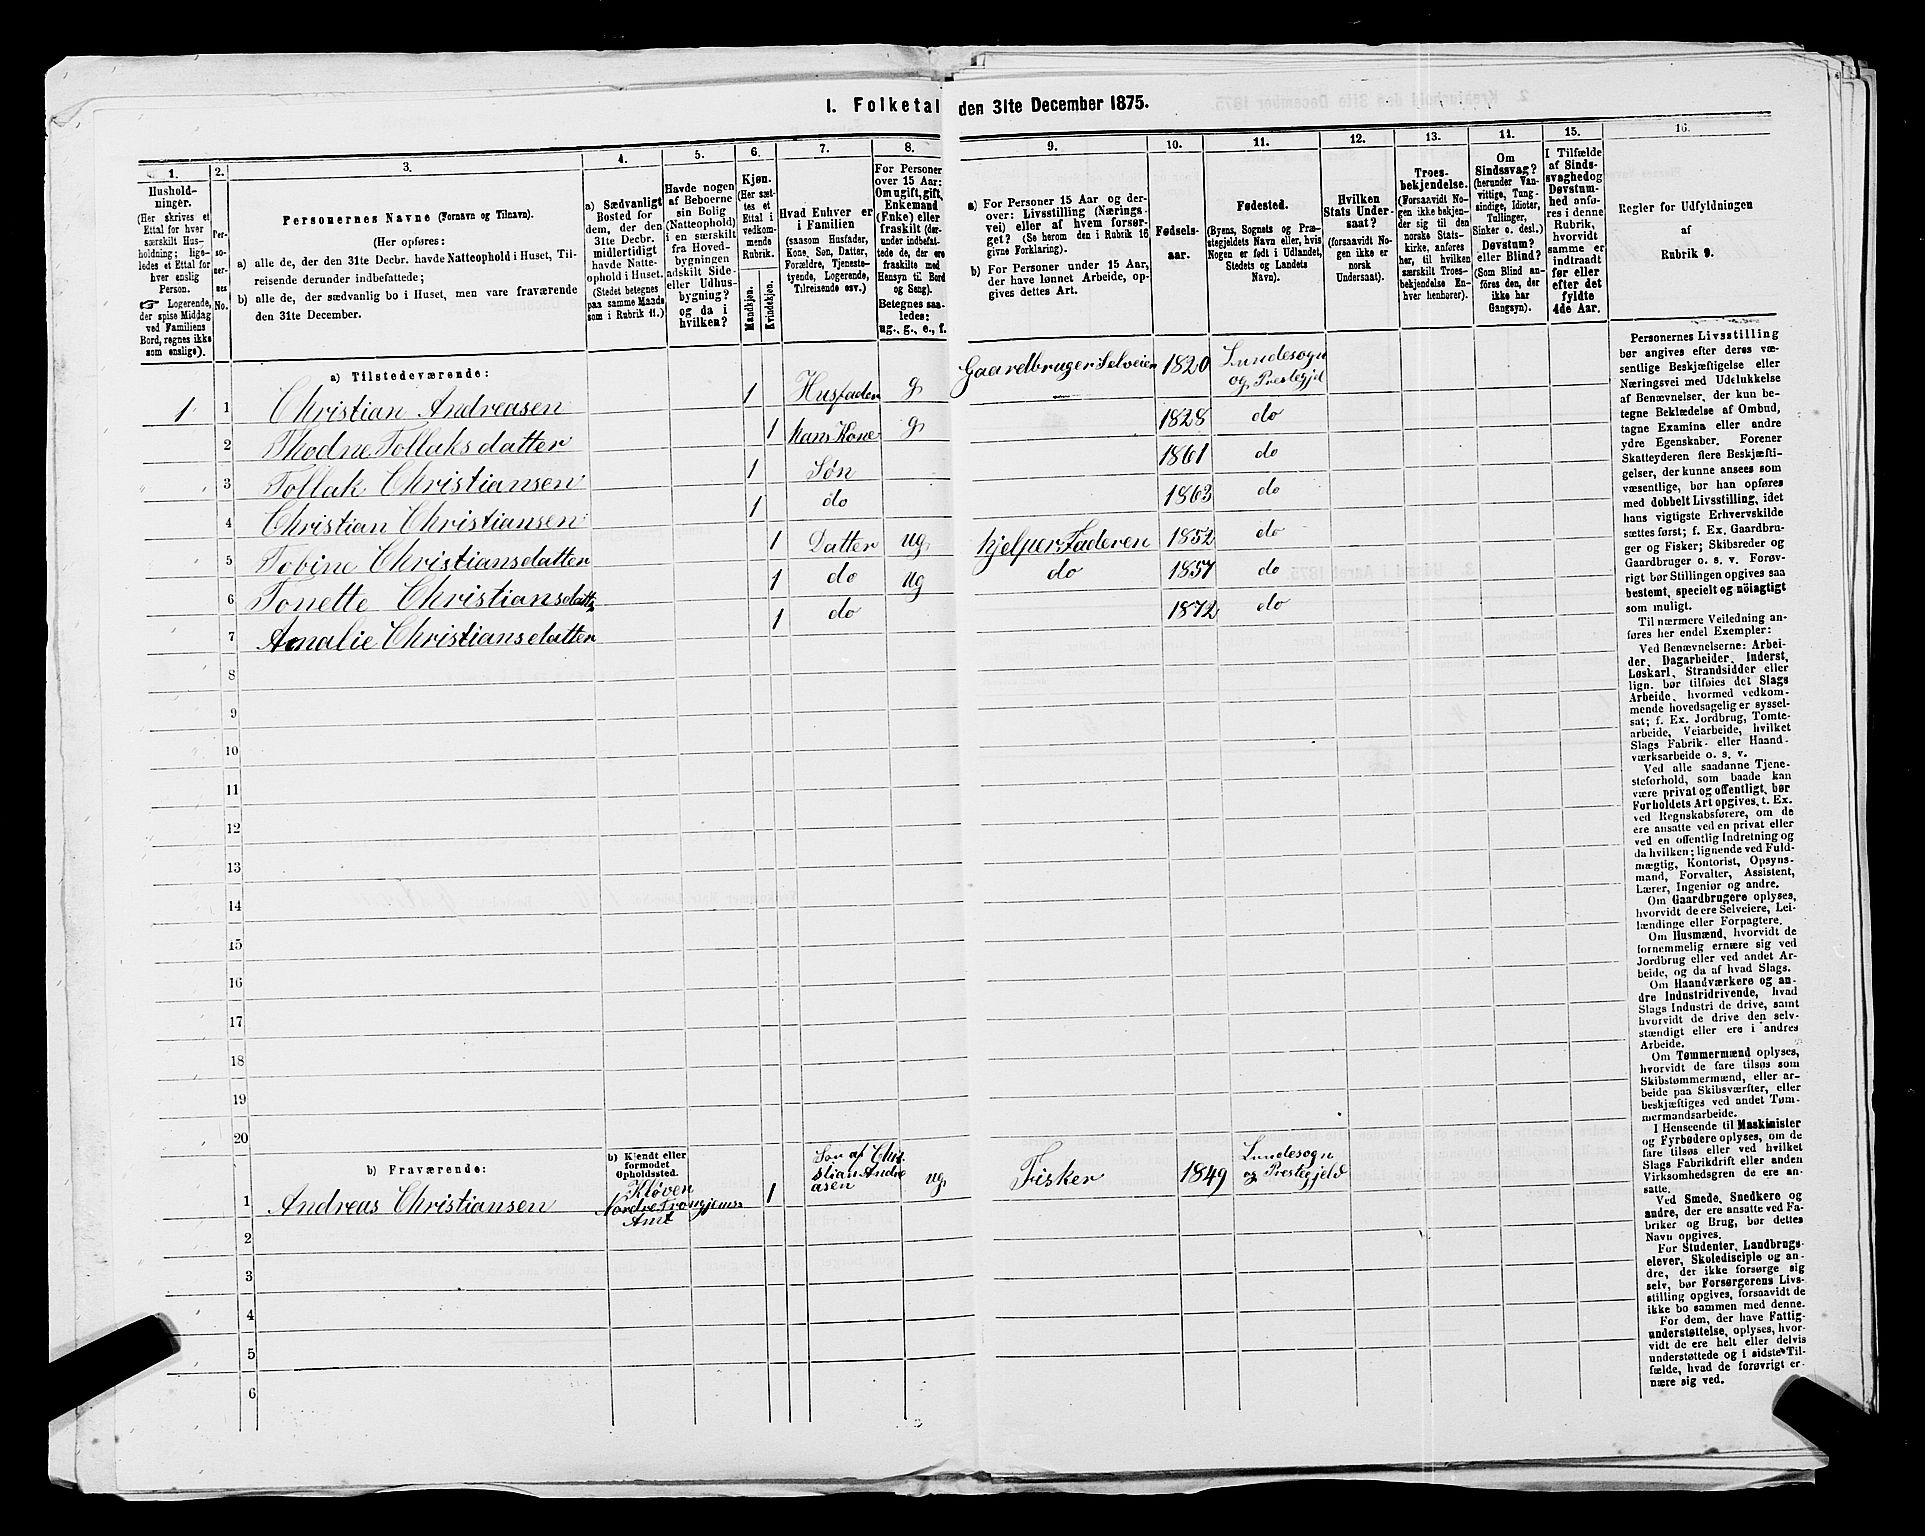 I. Folketal den 31te December 1875.
1. 2. 3. 4. 5. 6. 7. 8. 9. 10. 11. 12. 13. 11. 15. 16.
Hushold-
ninger.
(Her skrives et
Ettal for hver
særskilt Hus-
holdning; lige-
ledes et Ettal for
hver enslig
Person.
☞ Logerende,
der spise Middag
ved Familiens
Bord, regnes ikke
som enslige).
Per-
so-
ner-
nes
No.
Personernes Navne (Fornavn og Tilnavn).
(Her opføres:
a) alle de, der den 31te Decbr. havde Natteophold i Huset, Til-
reisende derunder indbefattede;
b) alle de, der sædvanlig bo i Huset, men vare fraværende
den 31te December.
a) Sædvanligt
Bosted for
dem, der den
31te Decbr.
midlertidigt
havde Natte-
ophold i Huset.
(Stedet betegnes
paa samme Maade
som i Rubrik 11.)
Havde nogen
af Beboerne
sin Bolig
(Natteophold)
i en særskilt
fra Hoved-
bygningen
adskilt Side-
eller Udhus-
bygning?
og da i
hvilken?
Kjøn.
(Her sæt-
tes et
Ettal i
vedkom-
mende
Rubrik.
Mandkjøn.
Kvindekjøn.
Hvad Enhver er
i Familien
(saasom Husfader,
Kone, Søn, Datter,
Forældre, Tjeneste-
tyende, Logerende,
Tilreisende osv.)
For Personer
over 15 Aar:
Om ugift, gift,
Enkemand
(Enke) eller
fraskilt (der-
under indbefat-
tede de, der ere
fraskilte med
Hensyn til Bord
og Seng).
Betegnes saa-
ledes:
ug., g., e., f.
a) For Personer 15 Aar og der-
over: Livsstilling (Nærings-
vei) eller af hvem forsør-
get? (Se herom den i Rubrik 16
givne Forklaring).
b) For Personer under 15 Aar,
der have lønnet Arbeide, op-
gives dettes Art.
Fødsels-
aar.
Fødested.
(Byens, Sognets og Præ-
stegjeldets Navn eller, hvis
Nogen er født i Udlandet,
Stedets og Landets
Navn).
Hvilken
Stats Under-
saat?
(forsaavidt No-
gen ikke er
norsk
Undersaat).
Troes-
bekjendelse.
(Forsaavidt No-
gen ikke bekjen-
der sig til den
norske Stats-
kirke, anføres
her, til hvilken
særskilt Troes-
bekjendelse En-
hver henhører).
Om
Sindssvag?
(herunder Van-
vittige, Tung-
sindige, Idioter,
Tullinger,
Sinker o. desl.)
Døvstum?
eller Blind?
(Som Blind an-
føres den, der
ikke har
Gangsyn).
I Tilfælde
af Sinds-
svaghed og
Døvstum-
hed anfø-
res i denne
Rubrik,
hvorvidt
samme er
indtraadt
før eller
efter det
fyldte
4de Aar.
Regler for Udfyldningen
af
Rubrik 9.
a) Tilstedeværende:
1 1 Christian Andreasen 1 Husfader g Gaardbruger Selveier 1820 Lundesogn
og Prestegjel
2 Thodne Tollaksdatter 1 Hans Kone g 1828 do
3 Tollak Christiansen 1 Søn 1861 do
4 Christian Christiansen 1 do 1863 do
5 Tobine Christiansdatter 1 Datter ug hjelper Faderen 1852 do
6 Tonette Christiansdatt 1 do ug do 1857 do
7 Amalie Christiansdatter 1 do 1872 do
8
9
10
11
12
13
14
15
16
17
18
19
20
b) Fraværende:
b) Kjendt eller
formodet
Opholdssted.
1 Andreas Christiansen
Kløven
Nordre Trongjems
Amt
1
Søn af Chri
stian Andre
asen
ug Fisker 1849
Lundesogn
og Prestegjeld
2
3
4
5
6
Personernes Livsstilling
bør angives efter deres væ-
sentlige Beskjæftigelse eller
Næringsvei med Udelukkelse
af Benævnelser, der kun be-
tegne Beklædelse af Ombud,
tagne Examina eller andre
ydre Egenskaber. Forener
Skatteyderen flere Beskjæfti-
gelser, der kunne ansees som
væsentlige, bør han opføres
med dobbelt Livsstilling, idet
hans vigtigste Erhvervskilde
sættes først; f. Ex. Gaardbru-
ger og Fisker; Skibsreder og
Gaardbruger o. s. v. Forøv-
rigt bør Stillingen opgives saa
bestemt, specielt og nöiagtigt
som muligt.
Til nærmere Veiledning an-
føres her endel Exempler:
Ved Benævnelserne: Arbei-
der, Dagarbeider, Inderst,
Løskarl, Strandsidder eller
lign. bør tilføies det Slags
Arbeide, hvormed vedkom-
mende hovedsagelig er syssel-
sat; f. Ex. Jordbrug, Tomte-
arbeide, Veiarbeide, hvilket
Slags Fabrik- eller Haand-
værksarbeide o. s. v.
Ved alle saadanne Tjene-
steforhold, som baade kan
være privat og offentligt, bør
Forholdets Art opgives, t. Ex.
ved Regnskabsførere, om de
ere ansatte ved en privat eller
ved en offentlig Indretning og
da hvilken; lignende ved Fuld-
mægtig, Kontorist, Opsyns-
mand, Forvalter, Assistent,
Lærer, Ingeniør og andre.
Om Gaardbrugere oplyses,
hvorvidt de ere Selveiere, Lei-
lændinge eller Forpagtere.
Om Husmænd, hvorvidt de
fornemmelig ernære sig ved
Jordbrug eller ved andet Ar-
beide, og da af hvad Slags.
Om Haandværkere og an-
dre Industridrivende, hvad
Slags Industri de drive, samt
hvorvidt de drive den selv-
stændigt eller ere i andres
Arbeide.
Om Tømmermænd oplyses,
hvorvidt de fare tilsøs som
Skibstømmermænd, eller ar-
beide paa Skibsværfter, eller
beskjæftiges ved andet Tøm-
mermandsarbeide.
I Henseende til Maskinister
og Fyrbødere oplyses, om de
fare tilsøs eller ved hvilket
Slags Fabrikdrift eller anden
Virksomhedsgren de ere an-
satte.
Ved Smede, Snedkere og
andre, der ere ansatte ved Fa-
briker og Brug, bør dettes
Navn opgives.
For Studenter, Landbrugs-
elever, Skoledisciple og an-
dre, der ikke forsørge sig
selv, bør Forsørgerens Livs-
stilling opgives, forsaavidt de
ikke bo sammen med denne.
For dem, der have Fattig-
understøttelse, oplyses, hvor-
vidt de ere helt eller delvis
understøttede og i sidste Til-
fælde, hvad de forøvrigt er-
nære sig ved.